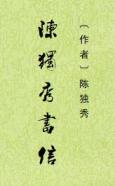 〔作者〕陈独秀
陳獨秀書信